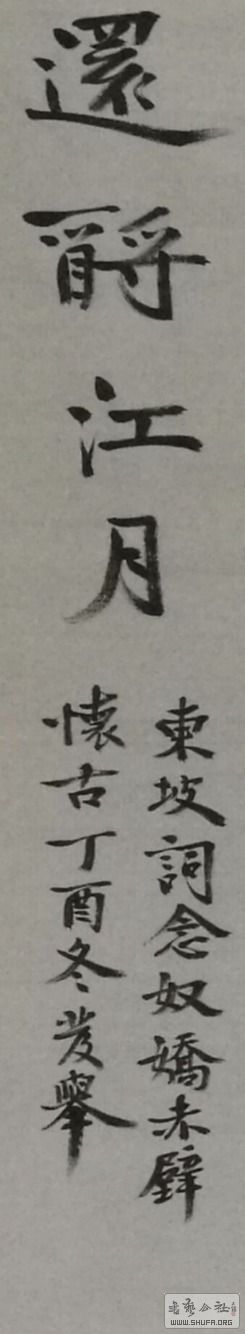 還酹江月
東坡詞念奴嬌赤壁
懷古丁酉冬發舉
WWW.SHUFA.ORG